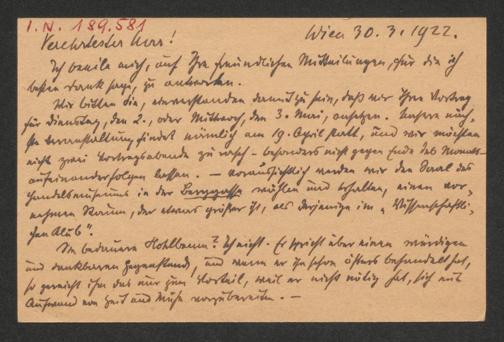 I. N. 189.581
Wien 30. 3. 1922.
Verehrtester Herr!
Ich beeile mich, auf Ihre freundlichen Mitteilungen, für die ich
besten Dank sage, zu antworten.
Wir bitten Sie, einverstanden damit zu sein, daß wir Ihren Vortrag
für Dienstag, den 2., oder Mittwoch, den 3. Mai, ansetzen. Unsere näch-
ste Veranstaltung findet nämlich am 19. April statt, und wir möchten
nicht zwei Vortragsabende zu rasch – besonders nicht gegen Ende des Monats –
aufeinanderfolgen lassen. – Voraussichtlich werden wir den Saal des
Handelsmuseums in der Berggasse wählen und erhalten, einen vor-
nehmen Raum, der etwas größer ist, als derjenige im „Wissenschaftli-
chen Klub“.
Sie bedauern Hohlbaum? Ich nicht. Er spricht über einen würdigen
und dankbaren Gegenstand, und wenn er ihn schon öfters behandelt hat,
so gereicht ihm das nur zum Vorteil, weil er nicht nötig hat, sich mit
Aufwand von Zeit und Mühe vorzubereiten. –